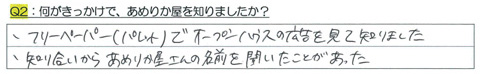 Q2：何がきっかけで、あめりか屋を知りましたか？
、フリーペーパー(パレット)でオープンハウスの広告を見て知りました
、知り合いからあめりか屋さんの名前を聞いたことがあった